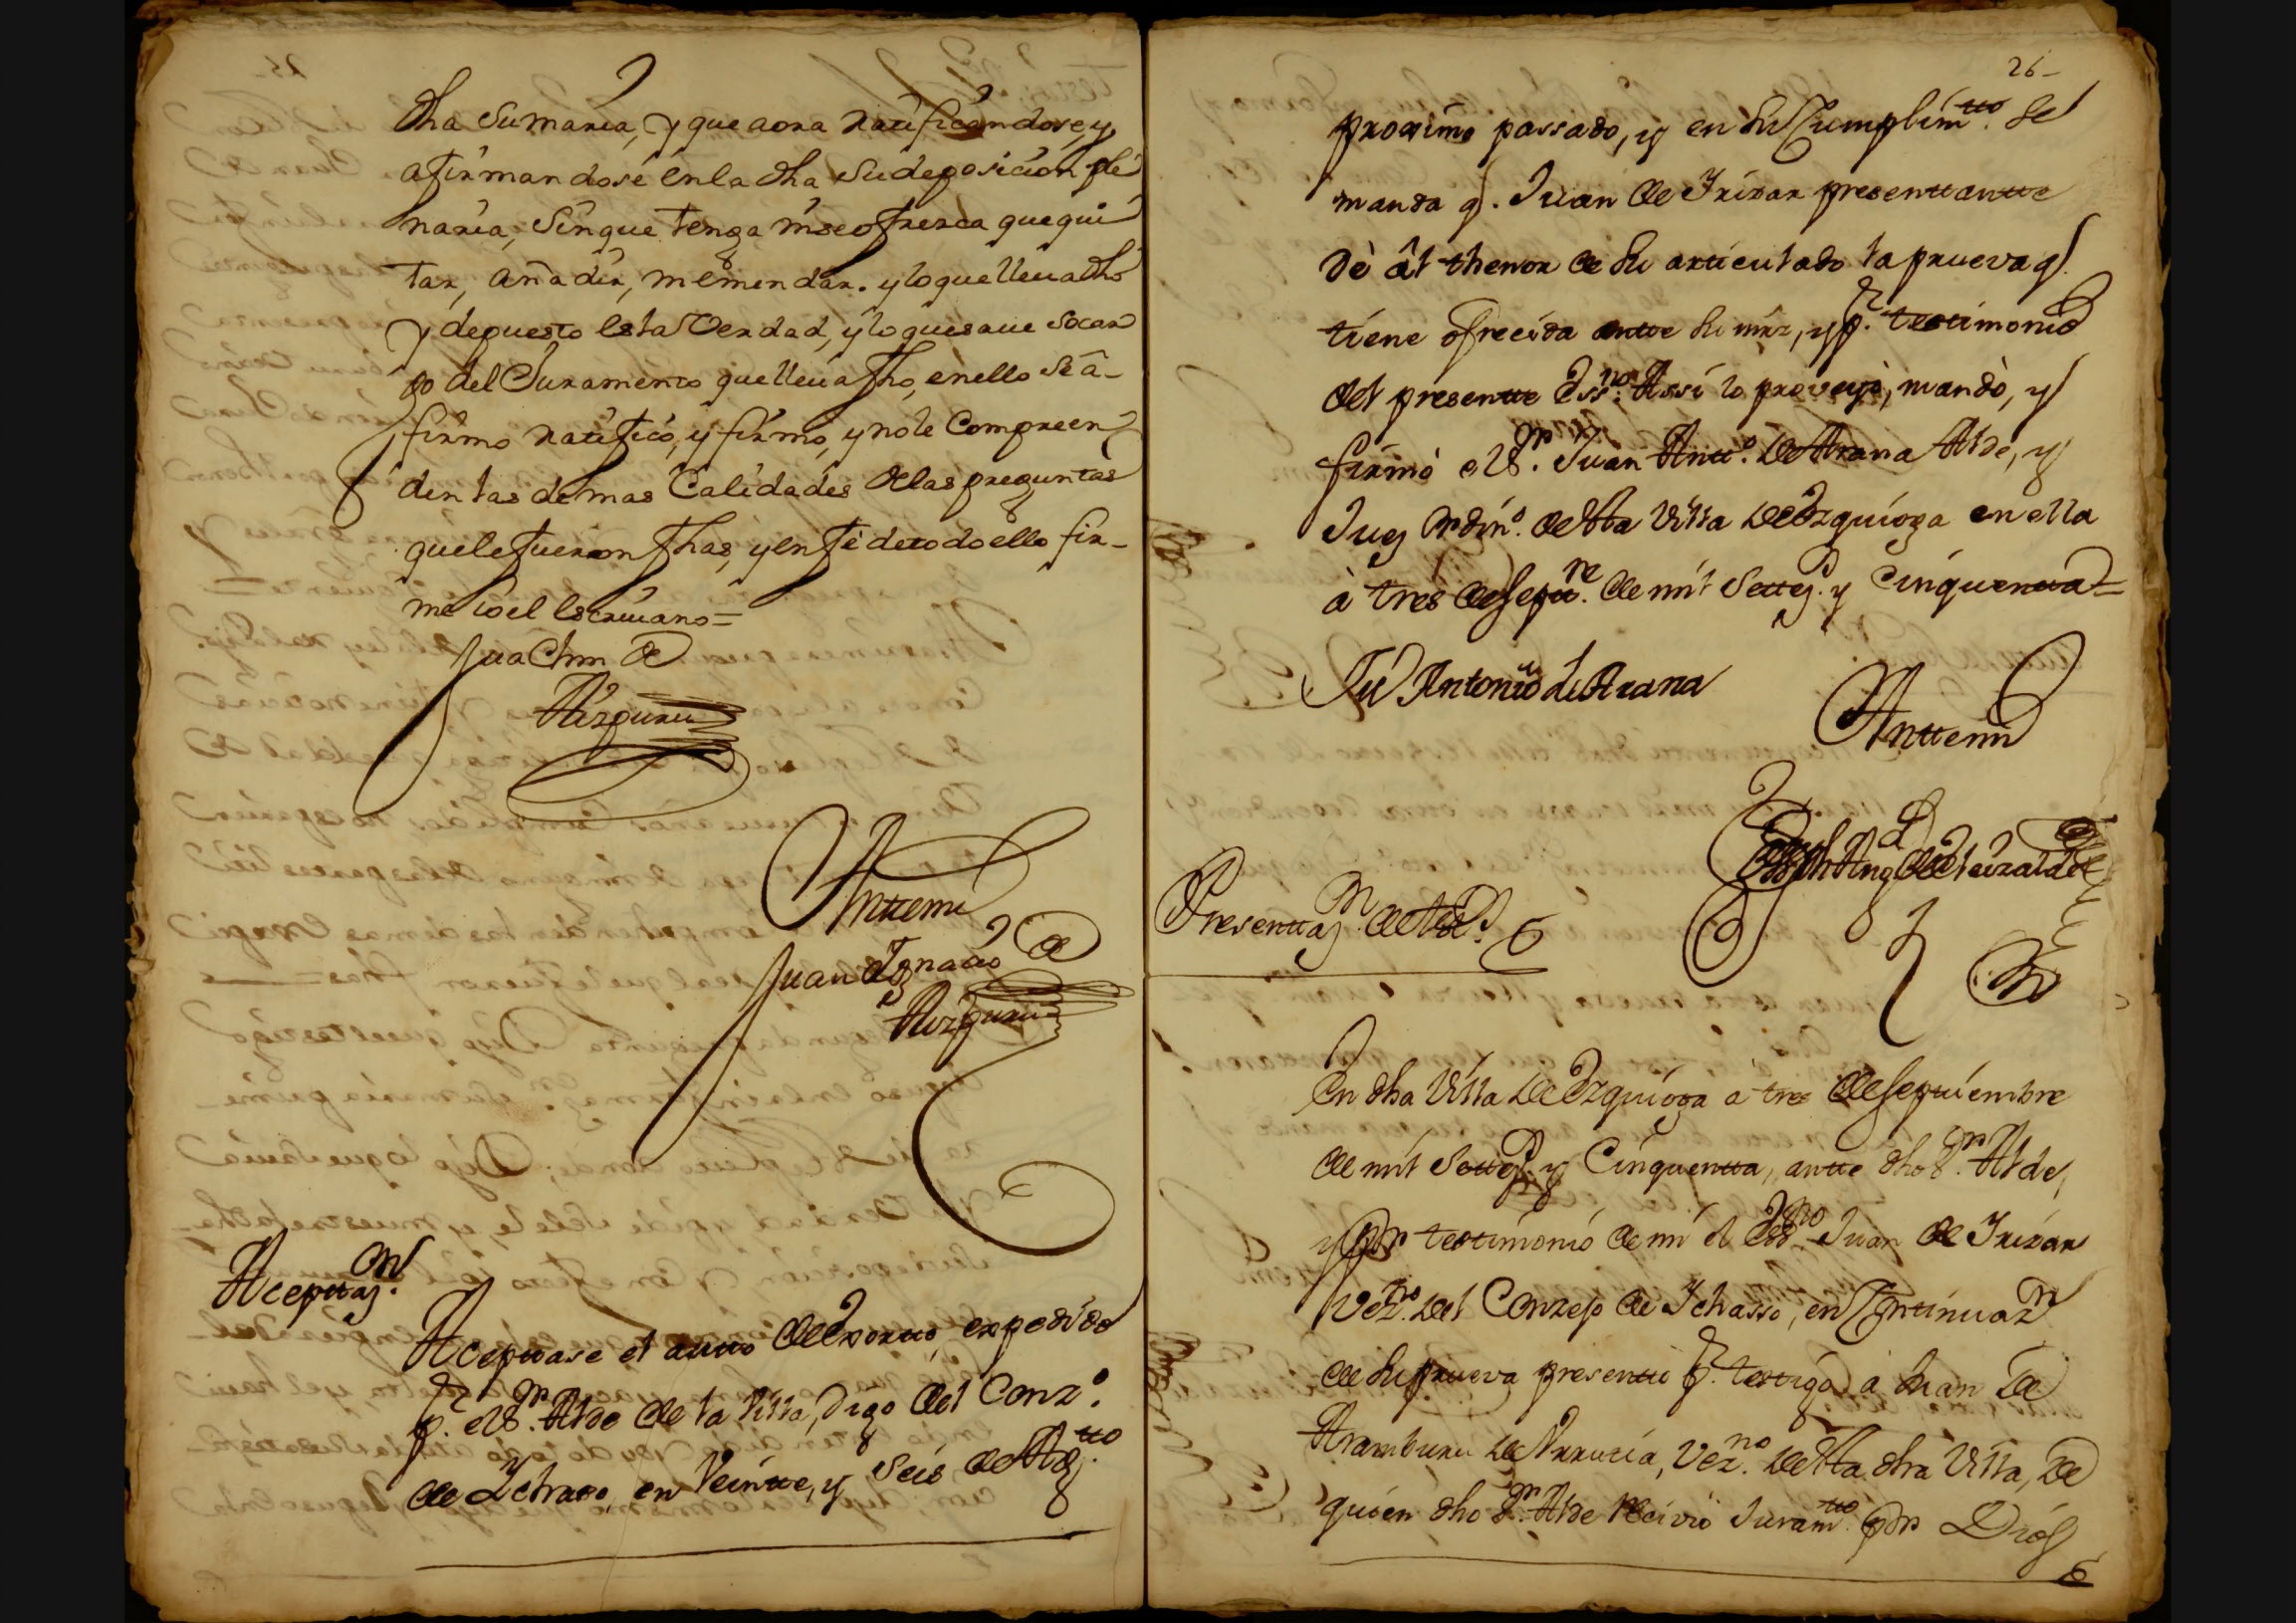 dha sumaria, y que aora ratificandose, y
afirmandose en la dha su deposicion ple
naria, sin que tenga ni se ofresca que qui
tar, añadir, ni emendar. y lo que lleua dho
y depuesto es la Verdad, y lo que saue socar
go del Juramento que lleua fho, en ello se a-
firmo ratificó, y firmó, y no le Compreen
den las demas Calidades de las preguntas
que le fueron fhas, y en fé de todo ello fir-
me io el escriuano=
Juachin de
Aizpuru
Anttemi
Juan Ignacio de
Aizpuru
Acepttaz.n
Acepttase el autto de Exortto, expedido
p.r el S.r Alde de la Villa, digo del Conz.o
de Ychasso, en Veintte, y seis de Ag.tto
26-
proximo passado, y en su Cumplim.tto se
manda q. Juan de Yrizar presentte antte
dè âl thenor de su articulado la prueva q.
tiene ofrecida antte su mrz, y p.r testimonio
del presentte Ess.no Assi lo proveyò, mandò, y
firmò el S.r Juan Antt.o de Arana Alde, y
Juez Ordin.o de esta Villa de Ezquioga en ella
à tres de Septt.re de mil settez.s y Cinquentta=
Ju Antonio de Arana
Anttemi
Presenttaz.n de test.s
En dha Villa de Ezquioga a tres de Septtiembre
de mil settez.s y Cinquentta, antte dho S.r Alde,
y por testimonio de mi el Ess.no Juan de Yrizar
Vez.no del Conzejo de Ychasso, en Continuaz.n
de su prueva presentto p.r testigo à Juan de
Aramburu de Urrutia, Vez.no de esta dha Villa, de
quien dho S.r Alde recivio Juram.tto por Dios